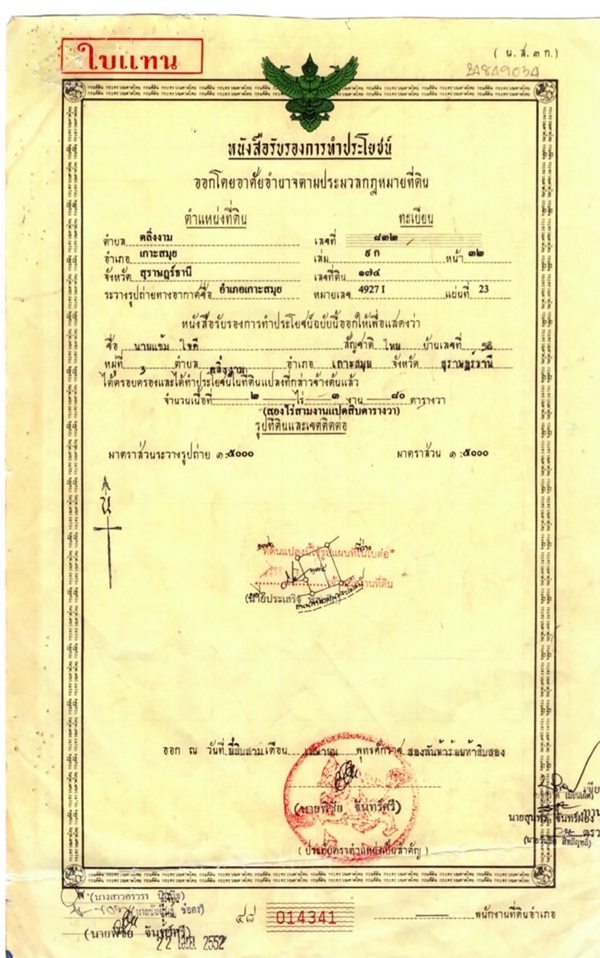 ใบแทน
( น.ส. ๓ ก.)
หนังสือรับรองการทำประโยชน์
ออกโดยอาศัยอำนาจตามประมวลกฎหมายที่ดิน
ตำแหน่งที่ดิน ทะเบียน
ตำบล ตลิ่งงาม เลขที่ ๘๓๒
อำเภอ เกาะสมุย เล่ม ๙ ก หน้า ๓๒
จังหวัด สุราษฎร์ธานี เลขที่ดิน ๑๗๔
ระวางรูปถ่ายทางอากาศชื่อ อำเภอเกาะสมุย หมายเลข 4927 I แผ่นที่ 23
หนังสือรับรองการทำประโยชน์ฉบับนี้ออกให้เพื่อแสดงว่า
ชื่อ นายแช่ม ใจดี สัญชาติ ไทย บ้านเลขที่ 58
หมู่ที่ 3 ตำบล ตลิ่งงาม อำเภอ เกาะสมุย จังหวัด สุราษฎร์ธานี
ได้ครอบครองและได้ทำประโยชน์ในที่ดินแปลงที่กล่าวข้างต้นแล้ว
จำนวนเนื้อที่ ๒ ไร่ ๓ งาน ๘๐ ตารางวา
(สองไร่สามงานแปดสิบตารางวา)
รูปที่ดินและเขตติดต่อ
มาตราส่วนระวางรูปถ่าย ๑:๕๐๐๐ มาตราส่วน ๑:๕๐๐๐
น
"ที่ดินแปลงนี้ใช้รูปแผนที่ในใบต่อ"
(นายประเสริฐ
ออก ณ วันที่ ยี่สิบสาม เดือน เมษายน พุทธศักราช สองพันห้าร้อยห้าสิบสอง
(นายพิชัย จันทร์ศรี)
(ประทับตราตำแหน่งเป็นสำคัญ)
(นางสาวอรวรา
๔๘ 014341 พนักงานที่ดินอำเภอ
(นายพิชัย จันทร์ศรี)
22 เม.ย. 2552